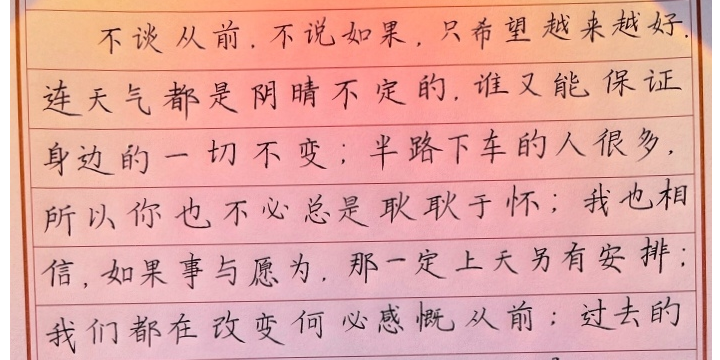 不谈从前，不说如果，只希望越来越好，
连天气都是阴晴不定的，谁又能保证
身边的一切不变；半路下车的人很多，
所以你也不必总是耿耿于怀；我也相
信，如果事与愿为，那一定上天另有安排；
我们都在改变何必感慨从前；过去的